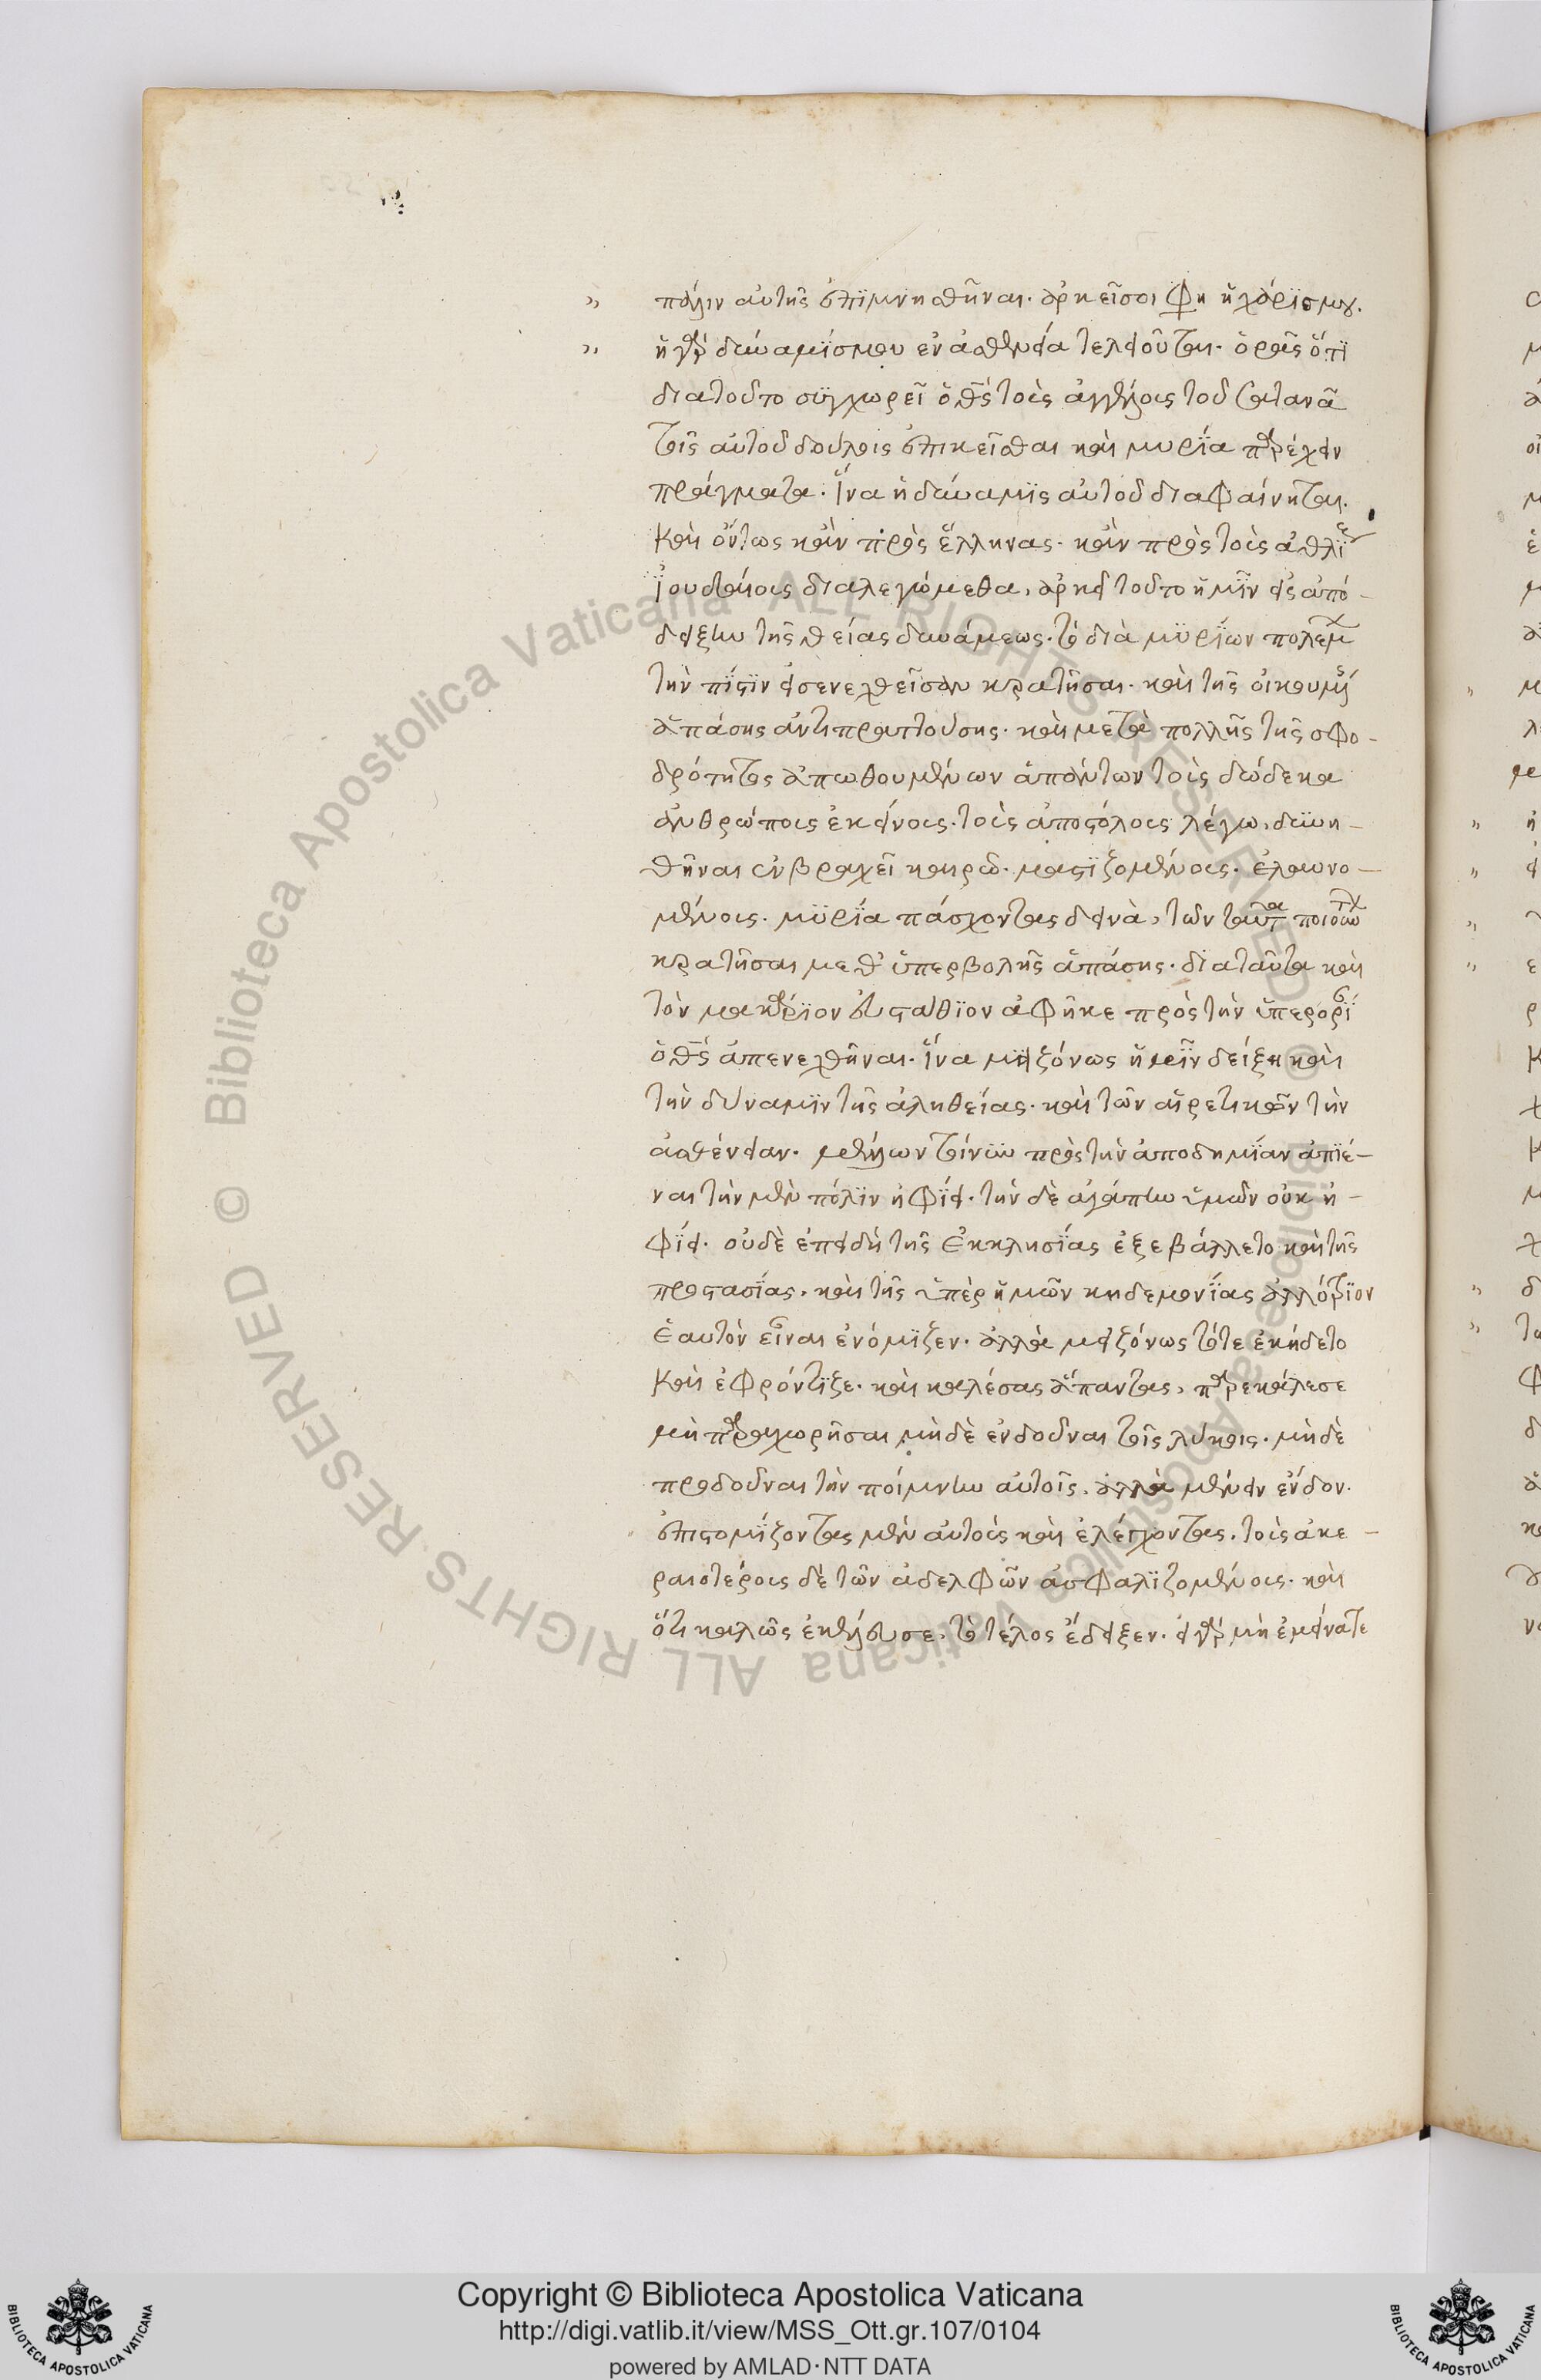 πάλιν αὐτῆς ἐπϊμνησθῆναι. ἀρκεῖ σοι φη ἡ χάρϊς μου.
ἡ γὰρ δύναμϊς μου ἐν ἀσθενεία τελειοῦται. ὁρᾶς ὅτϊ
διατοῦτο συγχωρεῖ ὁ θς τοὺς ἀγγέλους τοῦ σατανᾶ
τοῖς αὐτοῦ δούλοις ἐπικεῖσθαι καὶ μυρΐα παρέχειν
πράγματα. ἵνα ἡ δύναμϊς αὐτοῦ διαφαίνηται.
καὶ ὄντως κἀν πρὸς ἕλληνας. κἀν πρὸς τοὺς ἀθλΐους
ϊουδαίους διαλεγώμεθα, ἀρκεῖ τοῦτο ἡμῖν εἰς ἀπό-
δειξιν τῆς θείας δυνάμεως. τὸ διὰ μυρΐων πολέμων
τὴν πΐστϊν εἰσενεχθεῖσαν κρατῆσαι. καὶ τῆς οἰκουμένης
ἁπάσης ἀντιπραττούσης. καὶ μετὰ πολλῆς τῆς σφο-
δρότητος ἀπωθουμένων ἁπάντων τοὺς δώδεκα
ἀνθρώπους ἐκείνους. τοὺς ἀποστόλους λέγω, δυνη-
θῆναι ἐν βραχεῖ καιρῶ. μαστϊζομένους. ἐλαυνο-
μένους. μυρΐα πάσχοντας δεινὰ, τῶν ταῦτα ποιούντων
κρατῆσαι μεθ' ὑπερβολῆς ἁπάσης. διαταῦτα καὶ
τὸν μακάρϊον εὐστάθϊον ἀφῆκε πρὸς τὴν ὑπερορΐαν
ὁ θς ἀπενεχθῆναι. ἵνα μειζόνως ἡμῖν δείξη καὶ
τὴν δύναμϊν τῆς ἀληθείας. καὶ τῶν αἱρετικῶν τὴν
ἀσθένειαν. μέλλων τοίνυν πρὸς τὴν ἀποδημΐαν ἀπϊέ-
ναι τὴν μὲν πόλϊν ἠφΐει. τὴν δὲ ἀγάπην ὑμῶν οὐκ ἠ-
φΐει. οὐδὲ ἐπειδὴ τῆς ἐκκλησΐας ἐξεβάλλετο καὶ τῆς
προστασΐας, καὶ τῆς ὑπὲρ ἡμῶν κηδεμονΐας ἀλλότρϊον
ἑαυτὸν εἶναι ἐνόμϊζεν. ἀλλὰ μειζόνως τότε ἐκήδετο
καὶ ἐφρόντϊζε. καὶ καλέσας ἅπαντας, παρεκάλεσε
μὴ παραχωρῆσαι μὴδὲ ἐνδοῦναι τοῖς λύκοις. μὴδὲ
προδοῦναι τὴν ποίμνην αὐτοῖς. ἀλλὰ μένειν ἔνδον.
ἐπιστομΐζοντας μὲν αὐτοὺς καὶ ἐλέγχοντας. τοὺς ἀκε-
ραιοτέρους δὲ τῶν ἀδελφῶν ἀσφαλϊζομένους. καὶ
ὅτι καλῶς ἐκέλευσε. τὸ τέλος ἔδειξεν. εἰ γὰρ μὴ ἐμείνατε
Copyright © Biblioteca Apostolica Vaticana
http://digi.vatlib.it/view/MSS_Ott.gr.107/0104
powered by AMLAD·NTT DATA